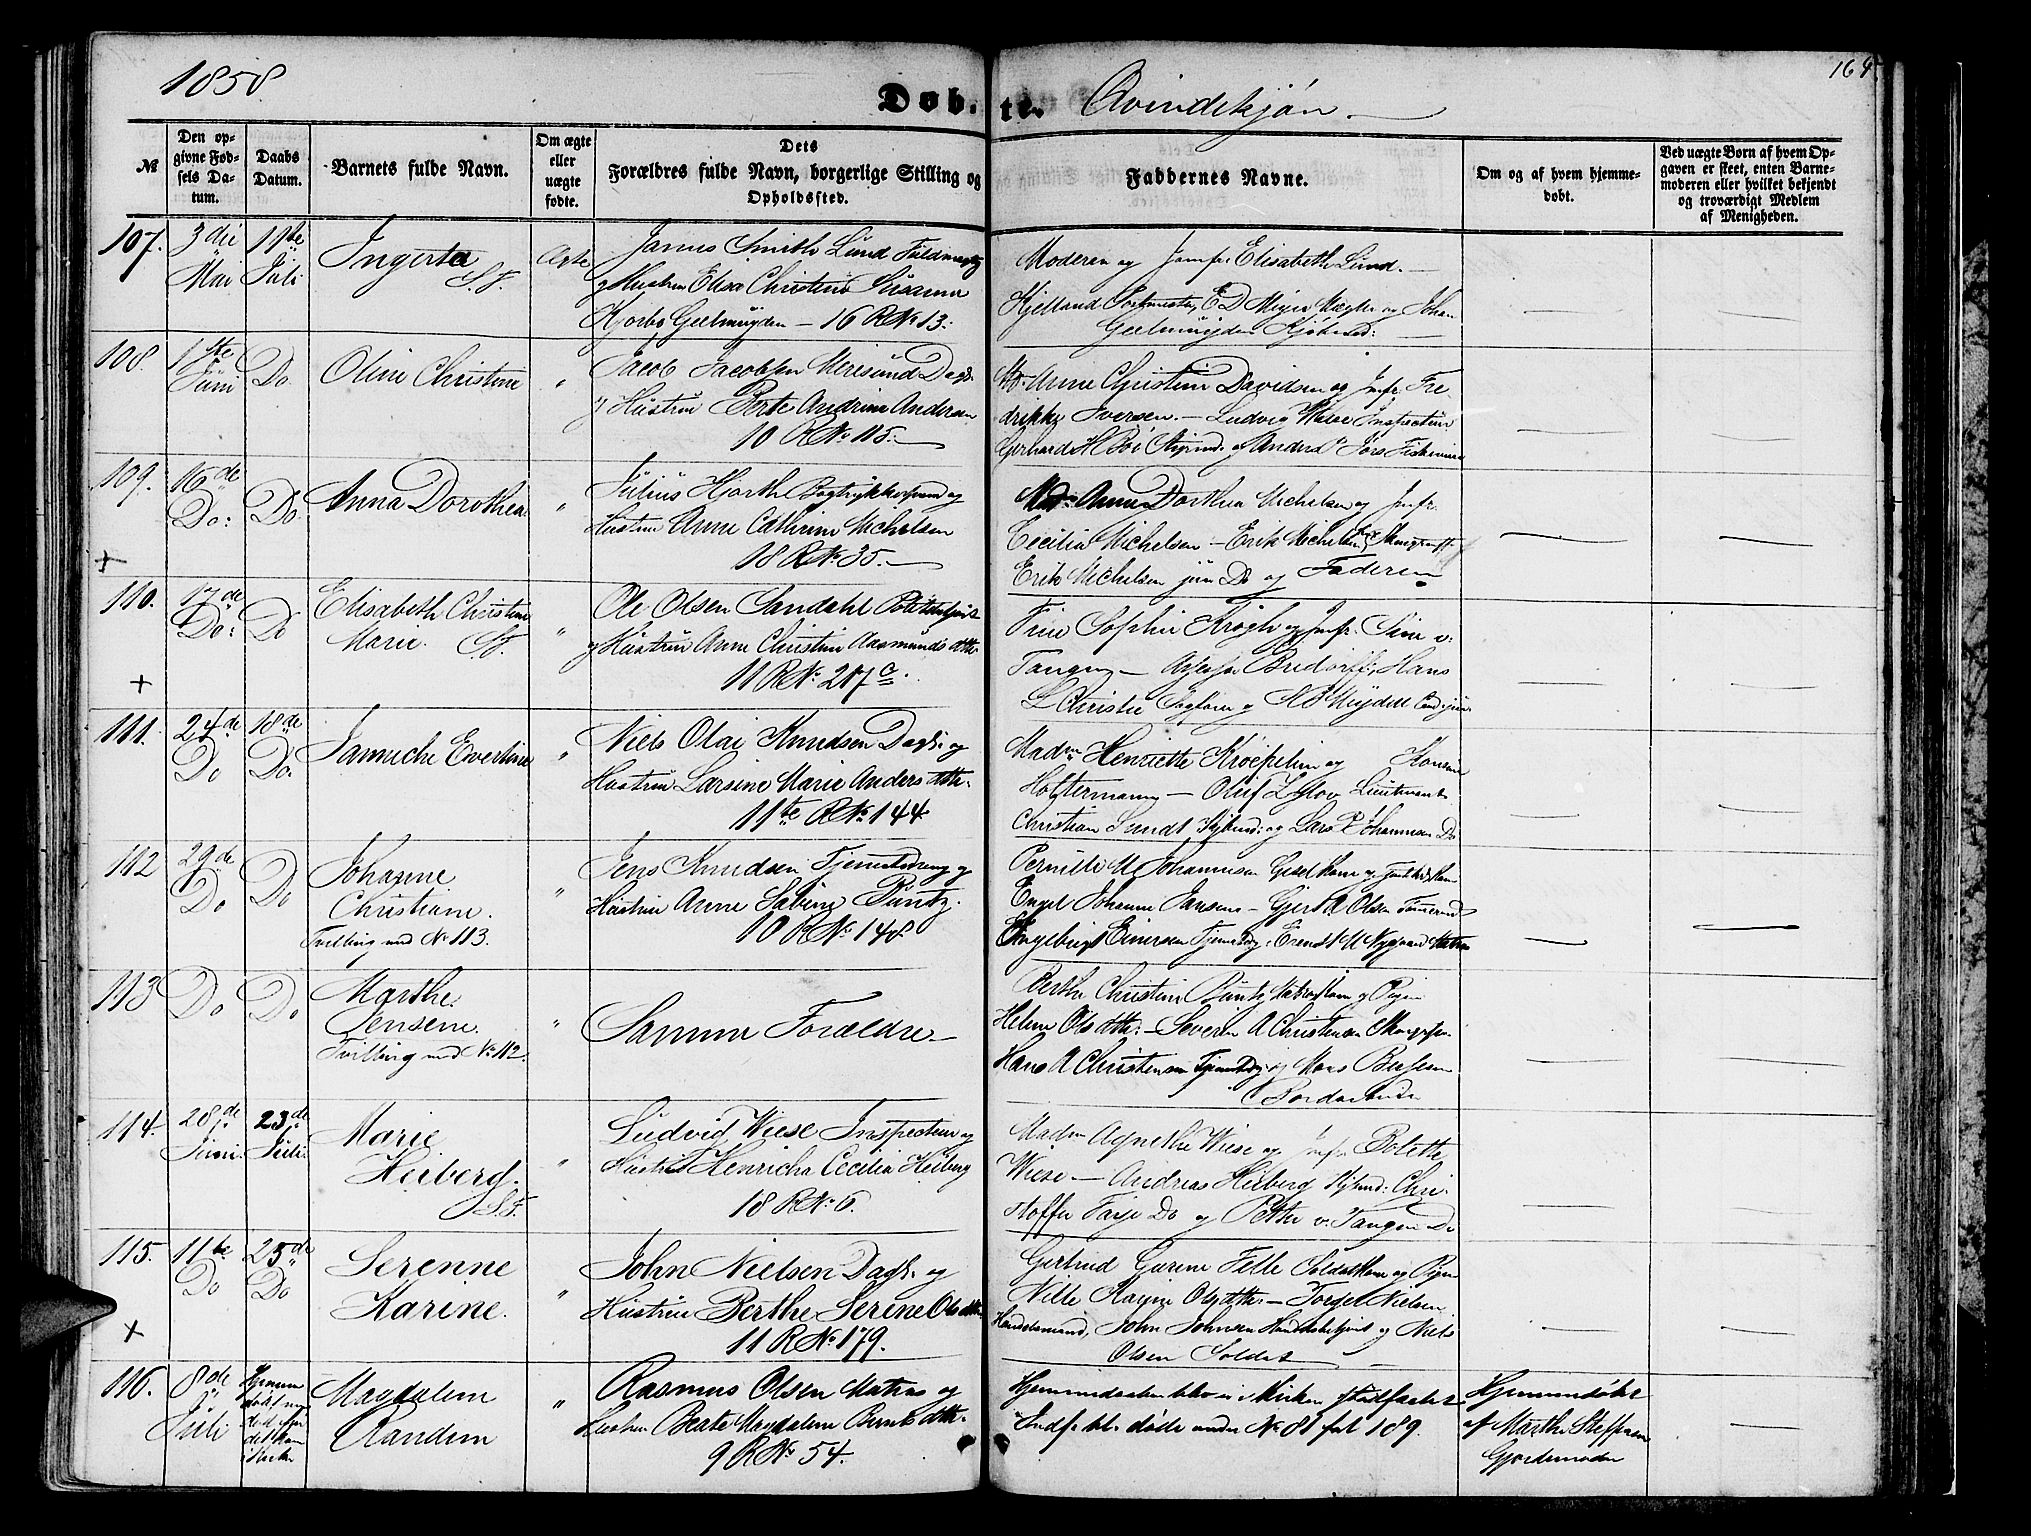 1858
Døb-
te.
Qvindekjøn.
164
№
Den op-
givne Fød-
sels Da-
tum.
Daabs
Datum.
Barnets fulde Navn.
Om ægte
eller
uægte
fødte.
Dets
Forældres fulde Navn, borgerlige Stilling og
Opholdssted.
Faddernes Navne.
Om og af hvem hjemme-
døbt.
Ved uægte Børn af hvem Op-
gaven er skeet, enten Barne-
moderen eller hvilket bekjendt
og troværdigt Medlem
af Menigheden.
107.
3die
Mai
11te
Juli
Ingerta
S.F.
Ægte
James Smith Lund Fuldmægtig
og Hustru Elisa Christine Susanna
Kjorbo Geelmuyden - 16 R № 13.
Moderen og Jomfr. Elisabeth Lund. -
Kjelland Postmester, C D Meyer Mægler og Johan
Geelmuyden Kjøbmd:
108.
1ste
Juni
Do
Oline Christine
"
Jacob Jacobsen Meresund Dagk.
og Hustru Berte Andrine Andersen
10 R № 115.
Md. Anne Christine Davidsen og Jmfr. Fre-
drikke Iversen. - Ludvig Wiese Inspecteur
Gerhard H
109.
16de
Do:
Do.
Anna Dorothea
"
Julius Hjorth Bogtrykkersvend og
Hustru Anne Cathrine Michelsen
18 R № 35.
Md: Anne Dorthea Michelsen og Jmfr.
Cecilia Michelsen - Erik Michelsen
Erik Michelsen jun Do og Faderen
+
110.
17de
Do:
Do
Elisabeth Christine
Marie. S.F.
"
Ole Olsen Sandahl Politibetjent
og Hustru Anne Christine Aasmundsdtter
11 R № 217 a.
Frue Sophie Krogh og Jmfr. Sine v:
Tangen - Bredorff, Hans
L Christie Sagfører og
+
111.
24de
Do
18de
Do.
Jannicke Evertine
"
Niels Olai Knudsen Dagk. og
Hustru Larsine Marie Andersdtter
11te R № 144
Madm Henriette Krøepelin og
Holtermann - Oluf Lieutenant
Christian Sundt Kjøbmd: og Lars P Johannesen Do
112
29de
Do
Do
Johanne
Christiane.
Tvilling med № 113.
"
Jens Knudsen Tjenestedreng og
Hustru Anne Sabine Puntz.
10 R № 148.
Pernille M Johannesen
Engel Johanne Jansen - Gjert A Olsen
Engebrigt Einersen Tjenestdrg, Erendt M Nygaard Matros
113
Do
Do
Marthe
Jensene.
Tvilling med № 112.
"
Samme Forældre
Berthe Christine Puntz Matroskone og Pigen
Helene Olsdtter. - Severin A Christensen
Hans A Christensen Tjenestdrg og Mons
114.
28de
Juni.
23de
Juli.
Marie
Heiberg.
S.F.
"
Ludvig Wiese Inspecteur og
Hustru Henricha Cecilia Heiberg
18 R № 6.
Madm Agnethe Wiese og Jmfr. Bolette
Wiese - Andreas Heiberg Kjøbmd: Chri-
stoffer Do og Petter v. Tangen Do
115.
11te
Do
25de
Do
Serenne
Karine.
"
John Nielsen Dagk. og
Hustru Berthe Serene Olsdtter
11 R № 179.
Gertrud Gurine Felle Soldatkone og Pigen
Nille Karine Olsdtter - Torgel Nielsen
Handelsmand, John Johnsen Handelsbetjent og Niels
Olsen Soldat
+
116.
8de
Juli
Magdalene
Randine
"
Rasmus Olsen Matros og
Hustru Berte Magdalene Berntsdtter
9 R № 54.
Hjemmedaaben blev ei i Kirken stadfæstet
Indf. bl. døde under № 81 fol 189.
Hjemmedøbt
af Marthe Steffensen
Gjordemoder